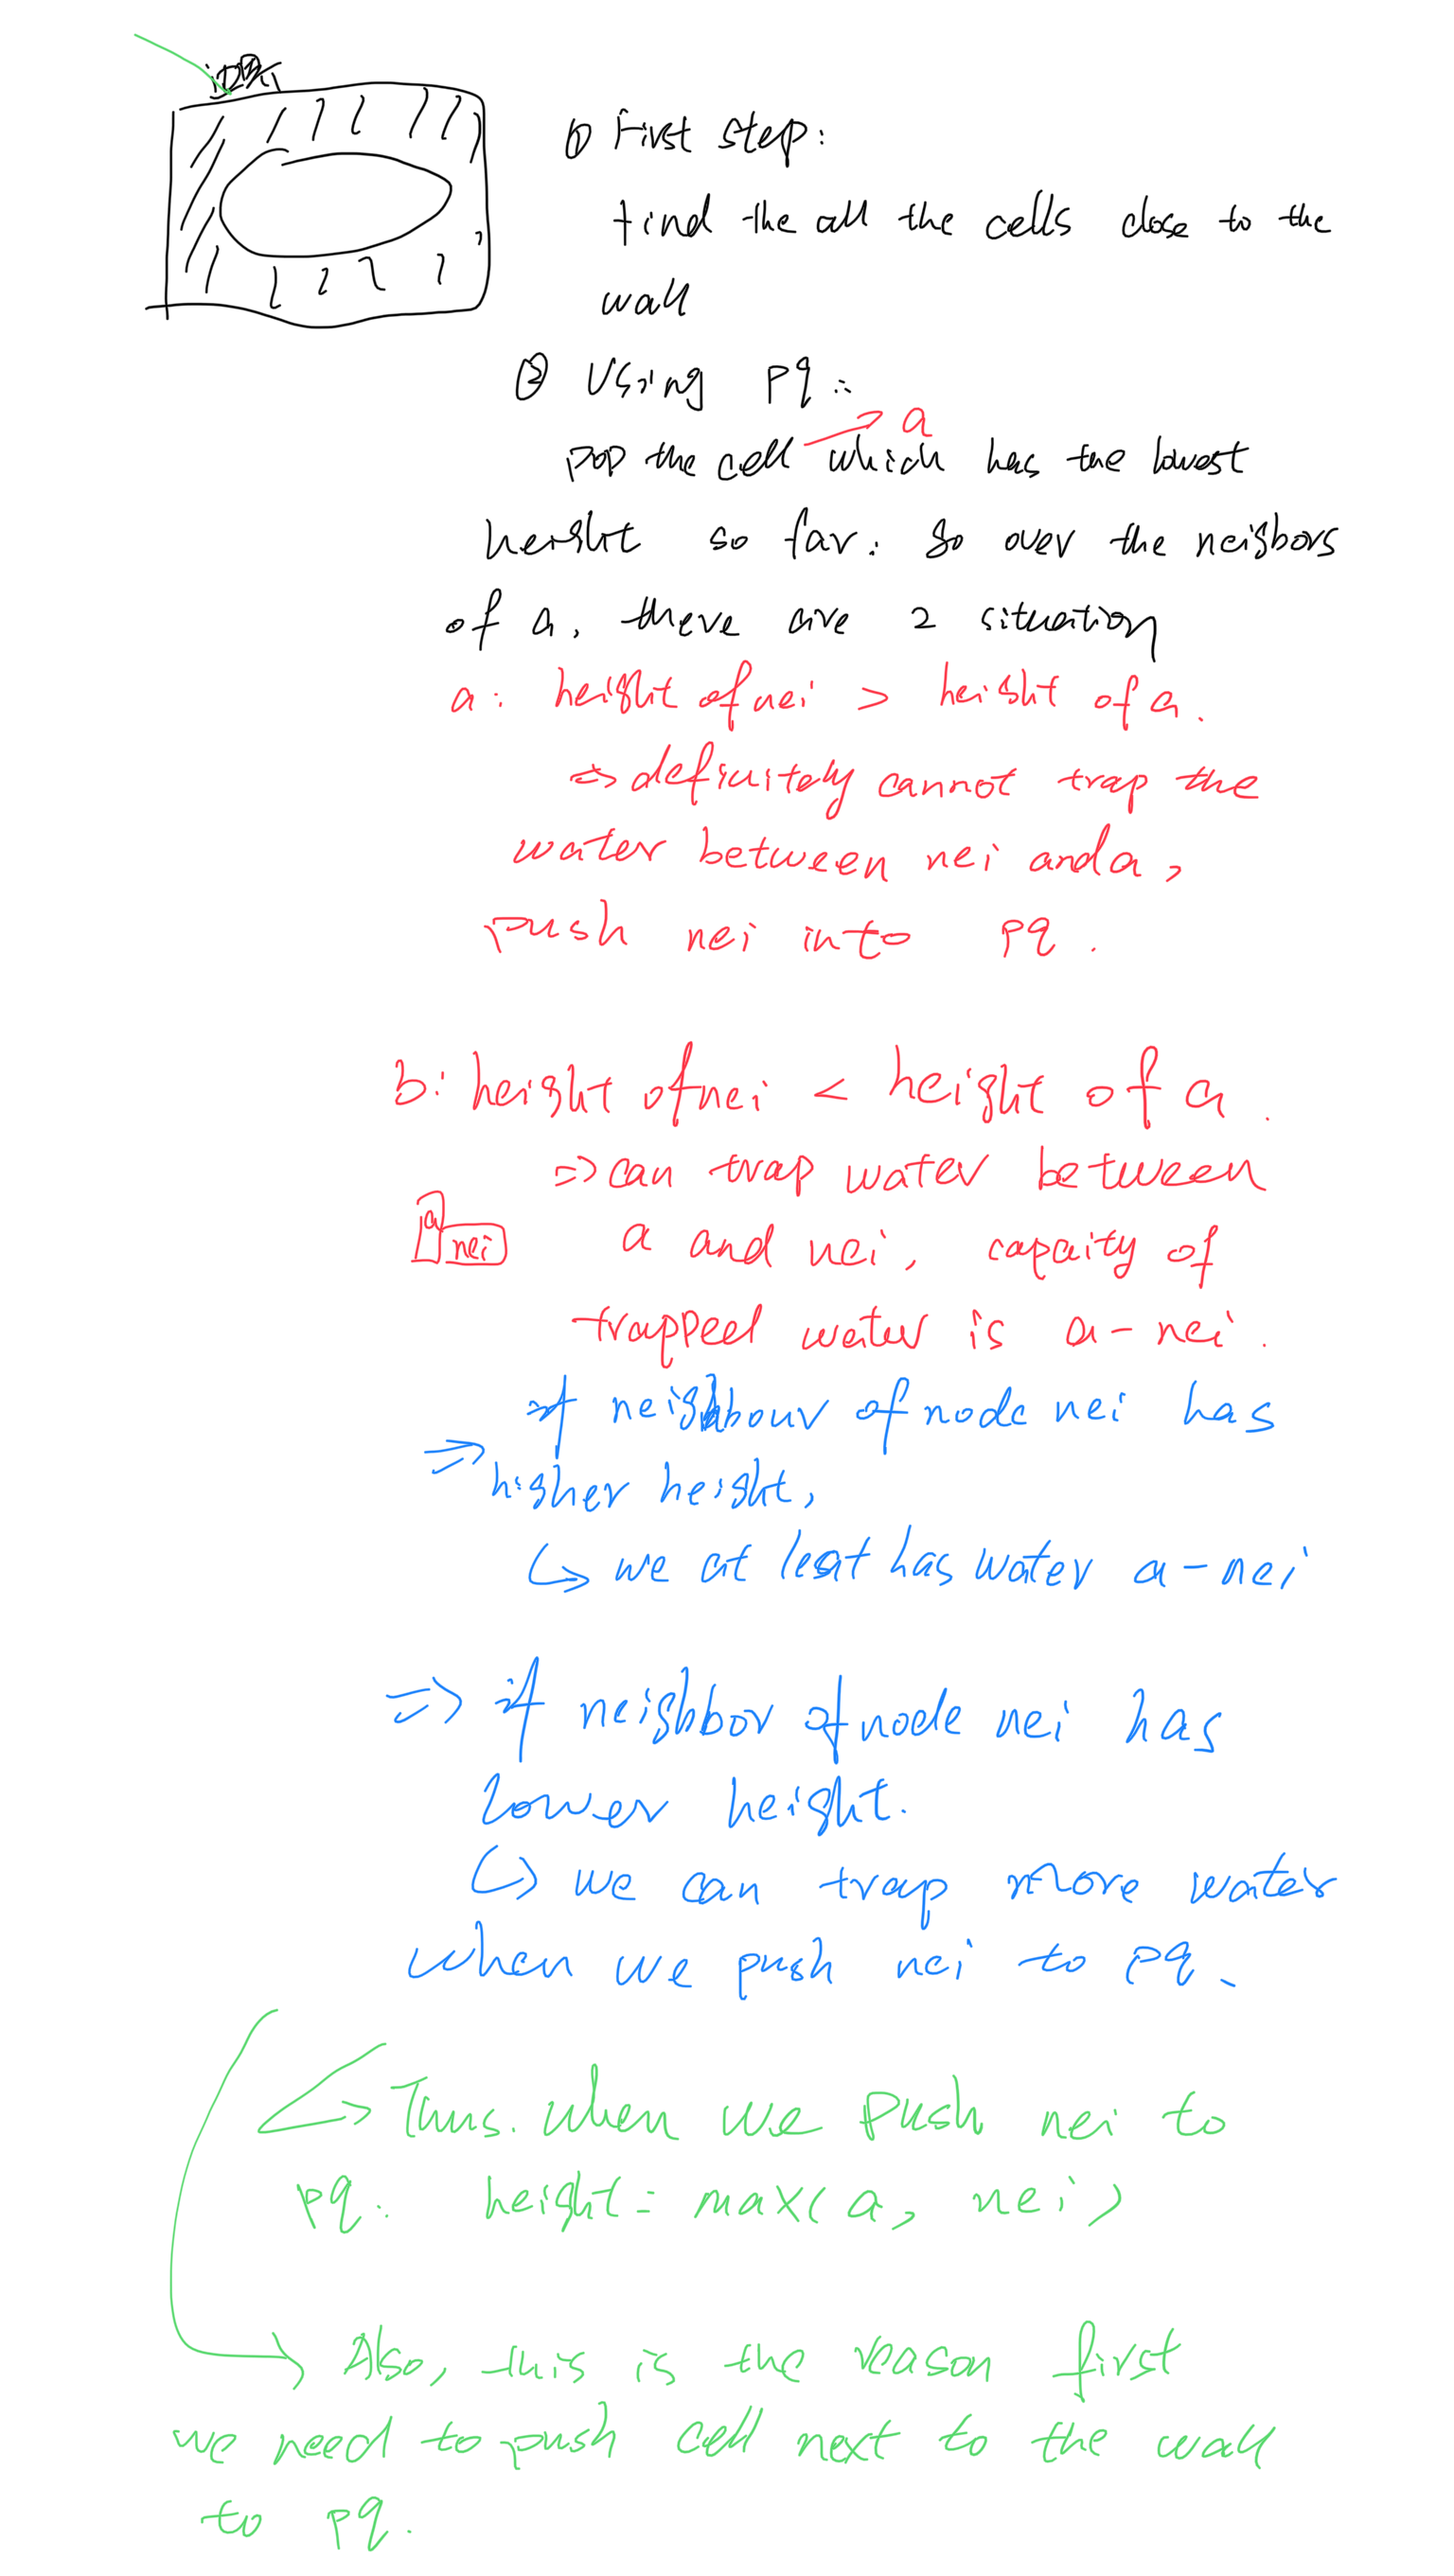 ① First step:
find the all the cells close to the
wall
② Using pq:
a
pop the cell which has the lowest
height so far. go over the neighbors
of a, there are 2 situation
a: height of nei > height of a.
=> definitely cannot trap the
water between nei and a,
push nei into pq.
b: height of nei < height of a.
=> can trap water between
a
nei
a and nei, capaity of
trapped water is a-nei.
if neighbour of node nei has
=> higher height,
↳ we at least has water a-nei
=> if neighbor of node nei has
lower height.
↳ we can trap more water
when we push nei to pq.
Thus. when we push nei to
pq. height = max(a, nei)
Also, this is the reason first
we need to push cell next to the wall
to pq.